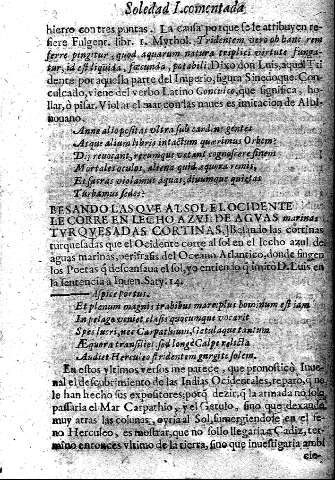 Soledad I. comentada
hierro con tres puntas. La causa porque se le atribuyen re-
fiere Fulgent. libr. 1. Mythol. Tridentem vero ob hanc rem
ferre pingitur, quod aquarum natura triplici virtute funga-
tur, id est liquida, fecunda, potabili: Dixo don Luis, aquel Tri
dente: por aquella parte del Imperio, figura Sinedoque. Con-
culcado, viene del verbo Latino Conculco, que significa, ho-
llar, ò pisar. Violar el mar con las naues es imitacion de Albi-
nouano.
Anne alio positas vltra sub cardine gentes
Atque alium libris intactum quærimus Orbem?
Di reuocant, rerumque vetant cognoscere finem
Mortales oculos, aliena quid æquora remis,
Et sacras violamus aquas, diuumque quietas
Turbamus sedes?
BESANDO LAS QVE AL SOL EL OCIDENTE
LE CORRE EN LECHO AZVL DE AGVAS marinas
TVRQVESADAS CORTINAS.] Besando las cortinas
turquesadas que el Ocidente corre al sol en el lecho azul de
aguas marinas, perifrasis del Oceano Atlantico, donde fingen
los Poetas q̃ descansaua el sol, yo entiendo q̃ imitò D. Luis en
la sentencia à Iuuen. Saty. 14.
Aspice portus,
Et plenum magnis trabibus mare, plus hominum est iam
In pelago veniet classis quocumque vocarit
Spes lucri, nec Carpathium, Getulaque tantum
Æquora transiliet, sed longè Calpe relicta
Audiet Herculeo stridentem gurgite solem.
En estos vltimos versos me parece, que pronosticò Iuue-
nal el descubrimiento de las Indias Ocidentales, reparo, q̃ no
le han hecho sus expositores, porq̃ dezir, q̃ la armada no solo
passaria el Mar Carpathio, y el Getulo, sino que dexando
muy atras las colunas, oyria al Sol, sumergiendose en el se-
no Herculeo, es mostrar, que no solo llegaria à Cadiz, ter-
mino entonces vltimo de la tierra, sino que inuestigaria
cie-